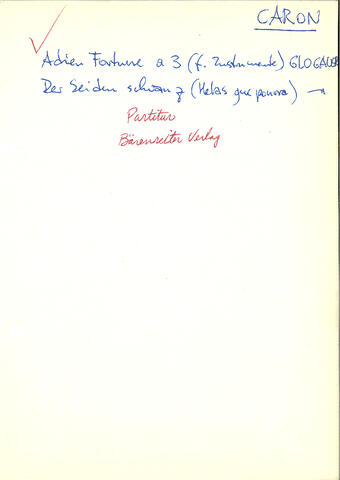 CARON
Adrien Fortune a 3 (f. Instrumente) GLOGAUER
Der Seidenschwanz (Helas que poura) →
Partitur
Bärenreiter Verlag